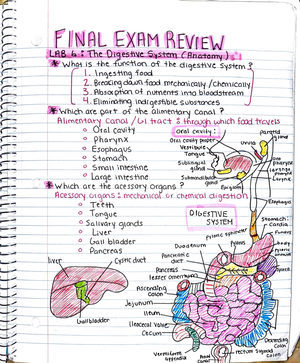 FINAL EXAM REVIEW
LAB 6: The Digestive System (Anatomy)
* What is the function of the digestive system?
1. Ingesting food
2. Breaking down food mechanically/chemically
3. Absorption of nutrients into bloodstream
4. Eliminating indigestible substances
* Which are part of the alimentary canal?
Alimentary canal/GI tract: through which food travels
Oral cavity
Pharynx
Esophagus
Stomach
Small intestine
Large intestine
Oral cavity:
Oral cavity proper
Vestibule
Tongue
Sublingual gland
Submandibular gland
Epiglottis
Uvula
Parotid gland
Pharynx
Esophagus
* Which are the acessory organs?
Acessory organs: mechanical or chemical digestion
Teeth
Tongue
Salivary glands
Liver
Gall bladder
Pancreas
DIGESTIVE SYSTEM
Stomach:
Cardia
Pyloric sphincter
Pylorus
Duodenum
Pancreatic duct
Pancreas
lesser omentum
Ascending Colon
Jejunum
Ileum
Ileocecal valve
Cecum
Vermiform appendix
Anal canal
Rectum
Sigmoid Colon
Descending Colon
liver
Cystic duct
Gallbladder